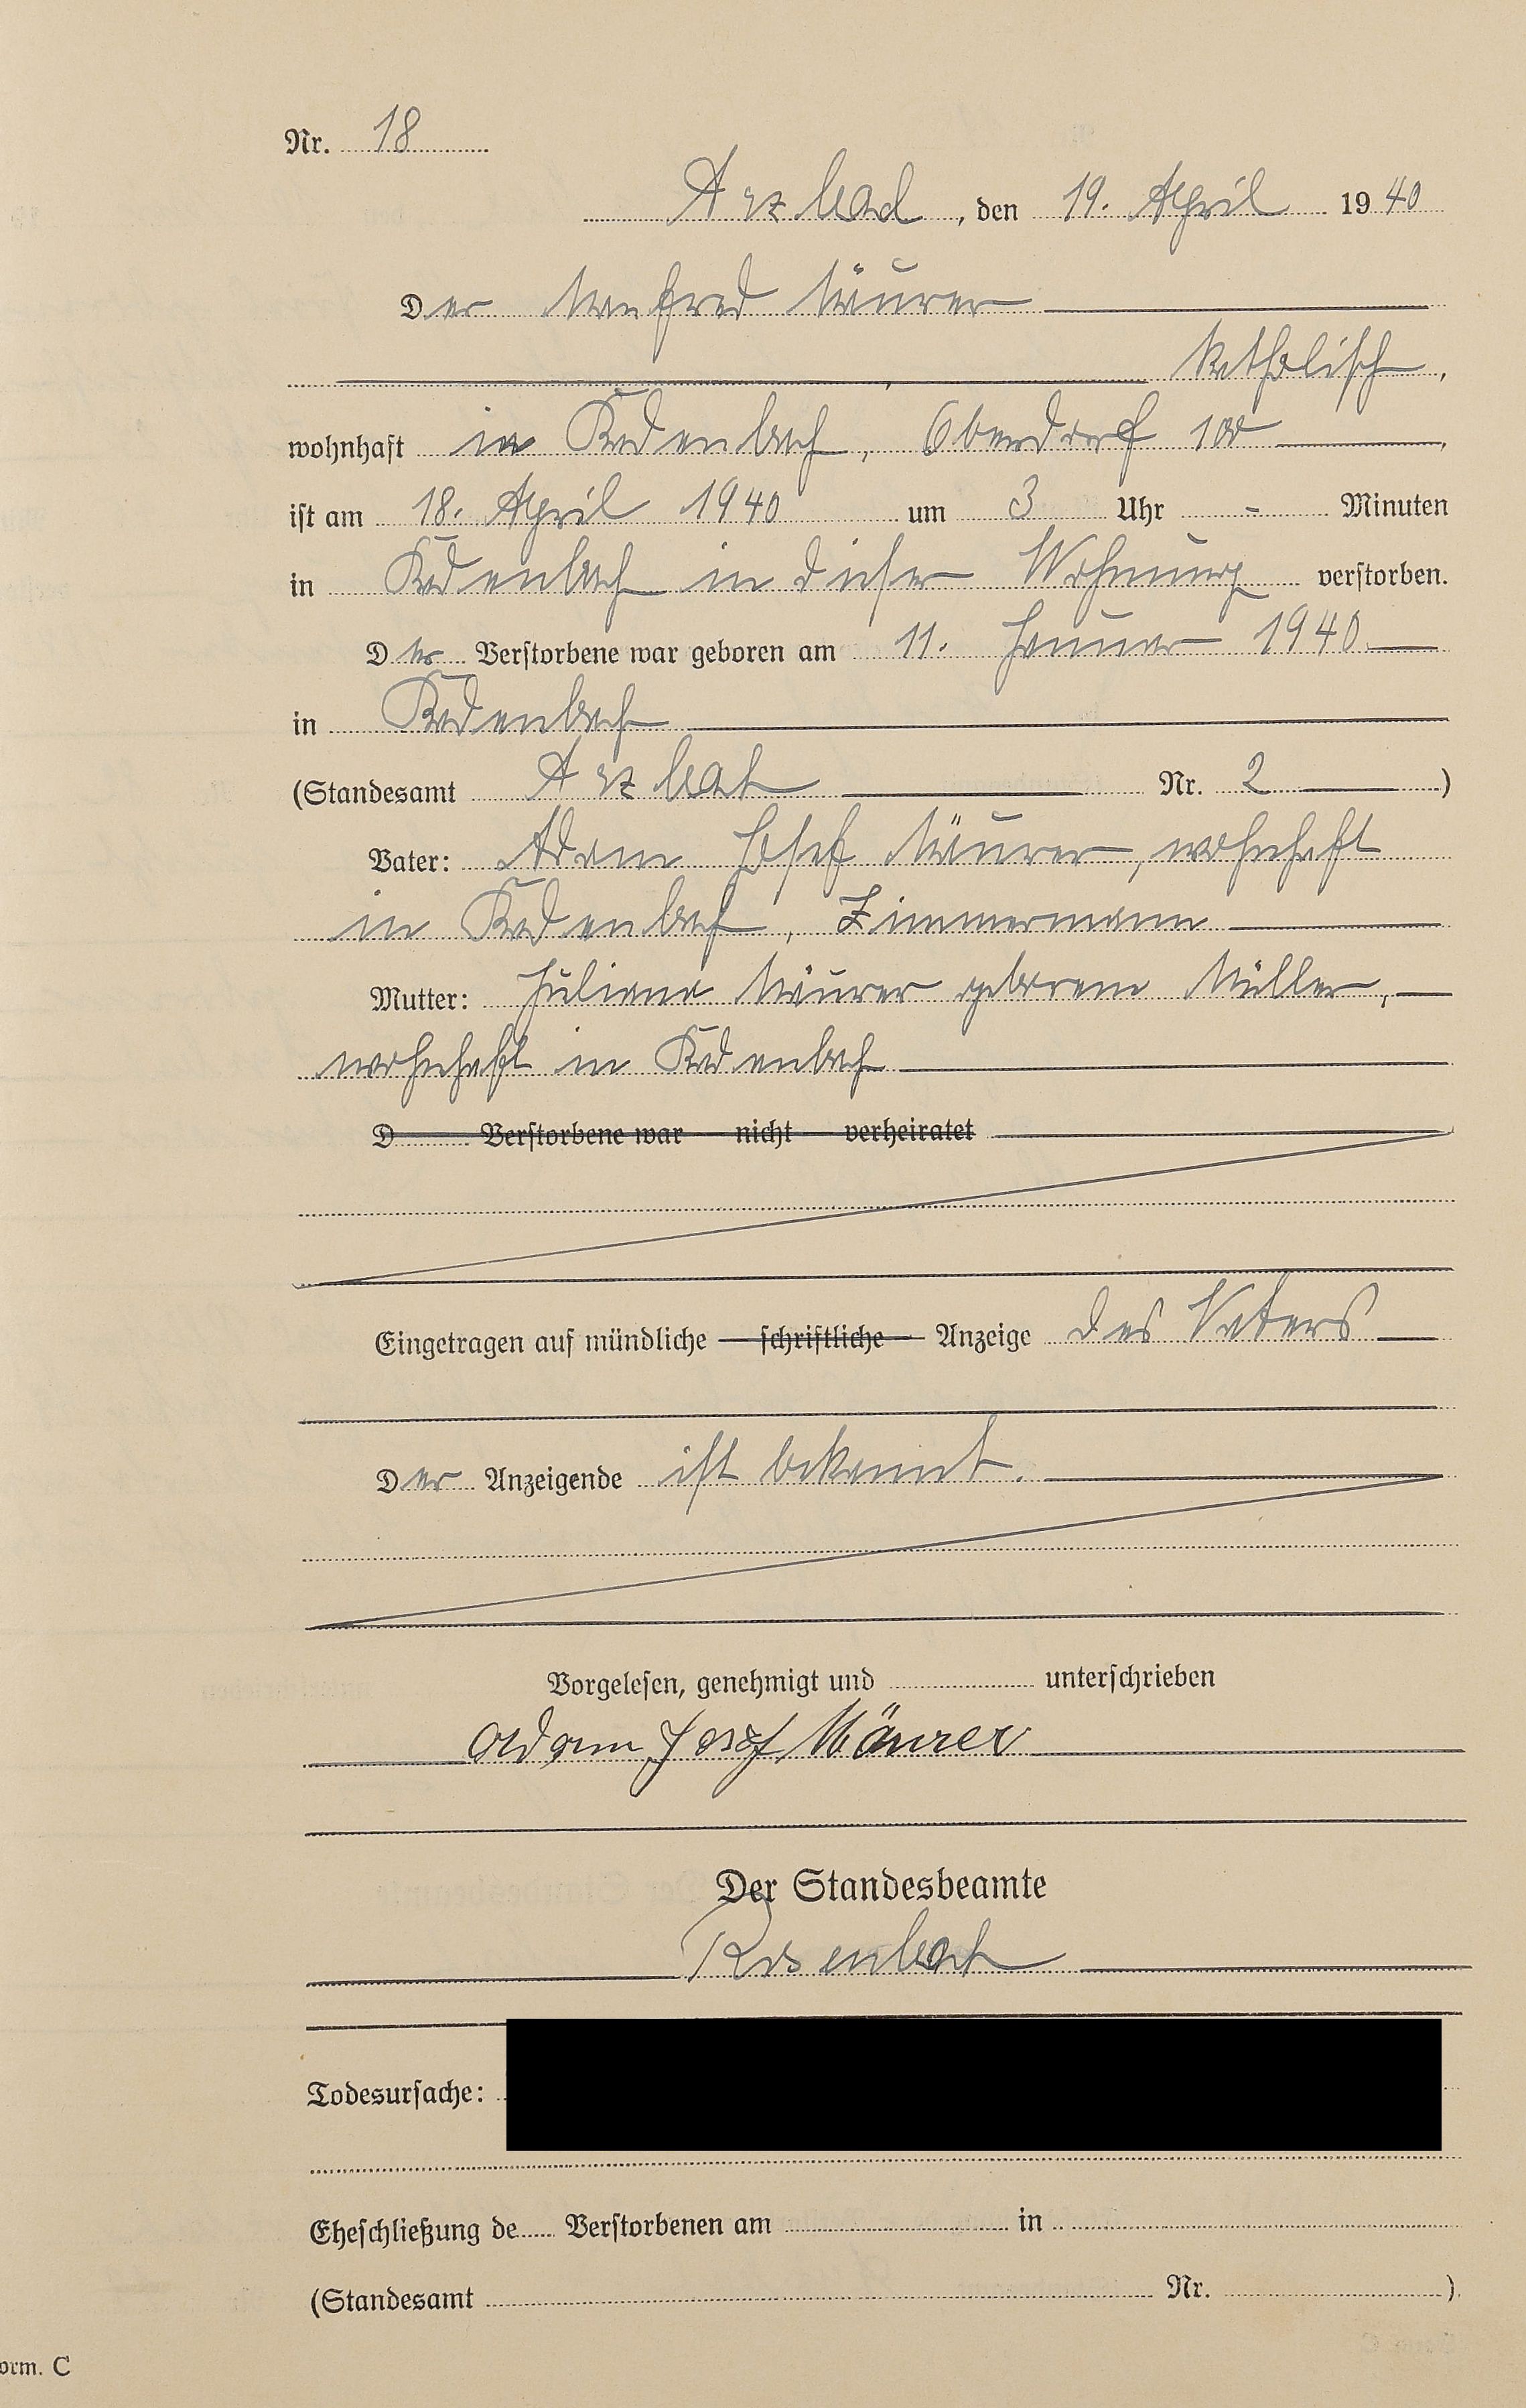 Nr. 18
Arzbach, den 19. April 1940
Der Manfred Mäurer
katholisch,
wohnhaft in Kadenbach, Oberdorf 100,
ist am 18. April 1940 um 3 Uhr - Minuten
in Kadenbach in dieser Wohnung verstorben.
Der Verstorbene war geboren am 11. Januar 1940
in Kadenbach
(Standesamt Arzbach Nr. 2)
Vater: Adam Josef Mäurer, wohnhaft
in Kadenbach, Zimmermann
Mutter: Juliana Mäurer geborene Müller,
wohnhaft in Kadenbach
D Verstorbene war nicht verheiratet
Eingetragen auf mündliche schriftliche Anzeige des Vaters
Der Anzeigende ist bekannt.
Vorgelesen, genehmigt und unterschrieben
Adam Josef Mäurer
Der Standesbeamte
Todesursache:
Eheschließung de Verstorbenen am in
(Standesamt Nr. )
orm. C